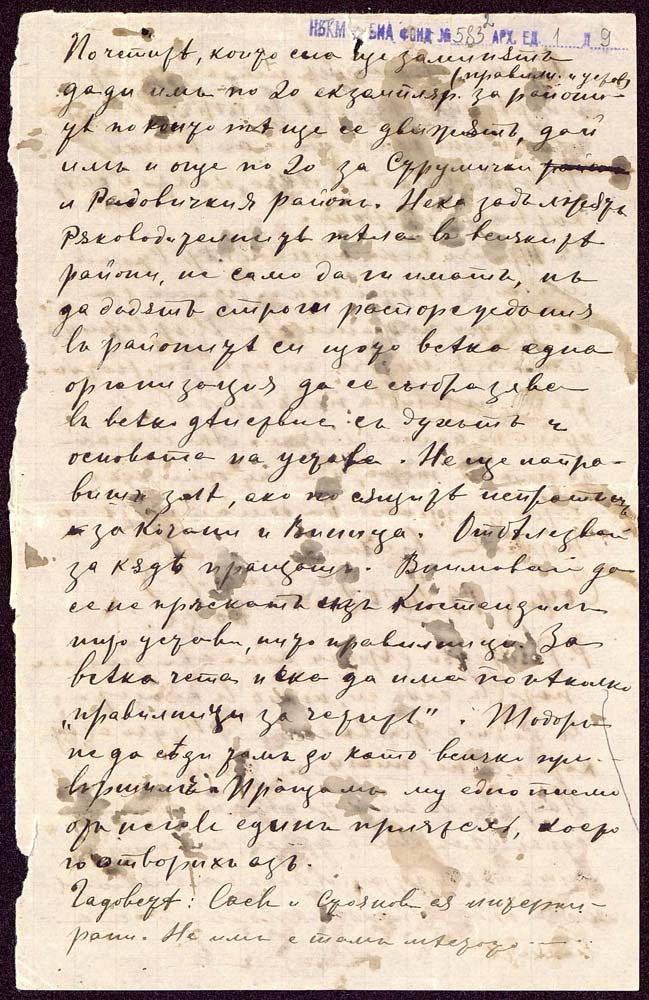 НБКМ БИА ФОНД № 583 АРХ. ЕД. 1 Л 9
2
По четирѣ, които сега ще заминѫтъ
(правилн. и устав)
дади имъ по 20 екземпляр. за райони-
тѣ по които тѣ ще се движѫтъ, дай
имъ и още по 20 за Струмички
и Радовичкия райони. Нека задължѫтъ
Рѫководителнитѣ тѣла въ всичкитѣ
райони, не само да ги иматъ, нъ
да дадѫтъ строги распореждания
въ районитѣ си щото всѣка една
организация да се съобразява
въ всѣко дѣйствие съ духътъ и
основата на устава. Не ще напра-
вишъ злѣ, ако по сѫщитѣ испратишъ
за Кочани и Виница. Отбѣлезвай
за кѫдѣ пращашъ. Внимовай да
се не пръскатъ изъ Кюстендилъ
нито устави, нито правилници. За
всѣка чета нека да има по нѣколко
„правилници за четитѣ". Тодоръ
не да сѣди тамъ до като всичко при-
вършишъ. Пращамъ му едно писмо
отъ неговъ единъ приятель, което
го отворихъ азъ.
Гадоветѣ: Саевъ и Стояновъ сѫ интерни-
рани. Не имъ е тамъ мѣстото